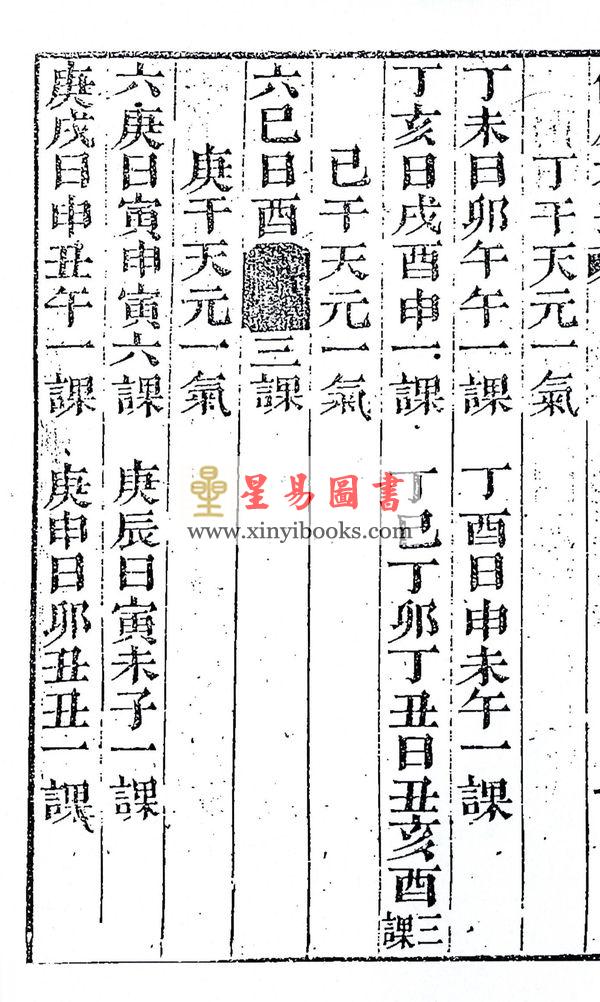 丁干天元一氣
丁未日卯午午一課　丁酉日申未午一課
丁亥日戌酉申一課　丁巳丁卯丁丑日丑亥酉三課
己干天元一氣
六己日酉三課
庚干天元一氣
六庚日寅申寅六課　庚辰日寅未子一課
庚戌日申丑午一課　庚申日卯丑丑一課
星易圖書
www.xinyibooks.com